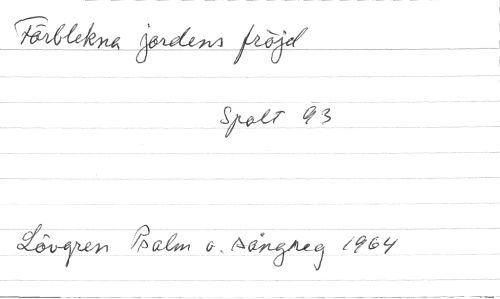 Förblekna jordens fröjd
Spalt 93
Lövgren Psalm o. sångreg 1964